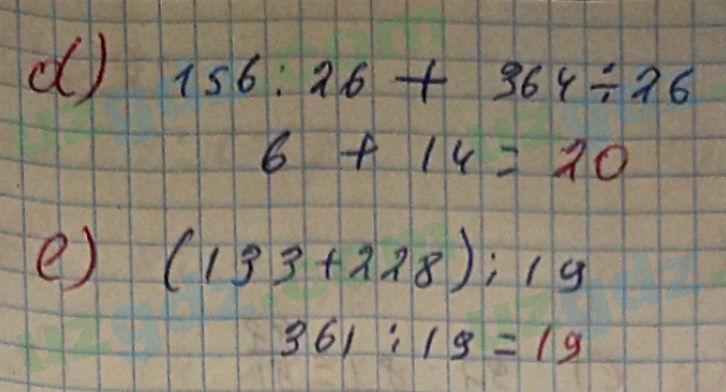 d) 156 : 26 + 364 ÷ 26
6 + 14 = 20
e) (133 + 228) : 19
361 : 19 = 19